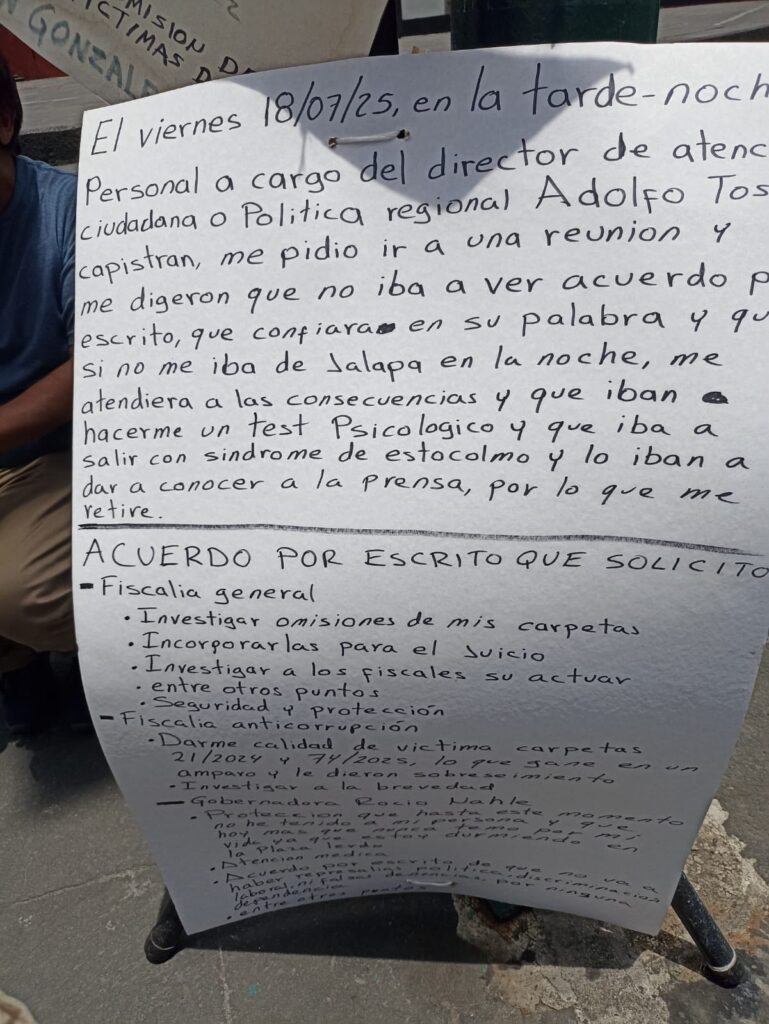 MISION DE
VICTIMAS D
GONZALE
El viernes 18/07/25, en la tarde-noch
Personal a cargo del director de atenc
ciudadana o Politica regional Adolfo Tos
capistran, me pidio ir a una reunion y
me digeron que no iba a ver acuerdo p
escrito, que confiara en su palabra y qu
si no me iba de Jalapa en la noche, me
atendiera a las consecuencias y que iban a
hacerme un test Psicologico y que iba a
salir con sindrome de estocolmo y lo iban a
dar a conocer a la prensa, por lo que me
retire.
ACUERDO POR ESCRITO QUE SOLICITO
- Fiscalia general
• Investigar omisiones de mis carpetas
• Incorporarlas para el Juicio
• Investigar a los fiscales su actuar
• entre otros puntos
• Seguridad y protección
- Fiscalia anticorrupción
• Darme calidad de victima carpetas
21/2024 y 74/2025, lo que gane en un
amparo y le dieron sobreseimiento
• Investigar a la brevedad
- Gobernadora Rocio Nahle
• Proteccion que hasta este momento
no he tenido a mi persona y que
hoy mas que nunca temo por mi
vida ya que estoy durmiendo en
la Plaza lerdo
• Atencion medica
• Acuerdo por escrito de que no va a
haber represalias politica, discriminacion
laboral, ni falsas denuncias, por ninguna
dependencia
• entre otros puntos